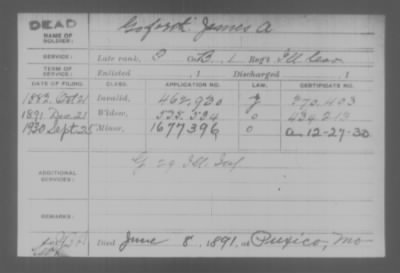 DEAD
Goforth James A
NAME OF SOLDIER:
SERVICE: Late rank, P Co. B, 1 Reg't Ill Cav
TERM OF SERVICE: Enlisted , 1 Discharged , 1
DATE OF FILING. CLASS. APPLICATION NO. LAW. CERTIFICATE NO.
1882 Oct 21 Invalid, 462,920 370.403
1891 Dec 21 Widow, 535.534 o 434.213
1930 Sept 25 Minor, 1677396 o 12-27-30
G 29 Ill Inf
ADDITIONAL SERVICES:
REMARKS:
Died June 8, 1891, at Puxico, Mo